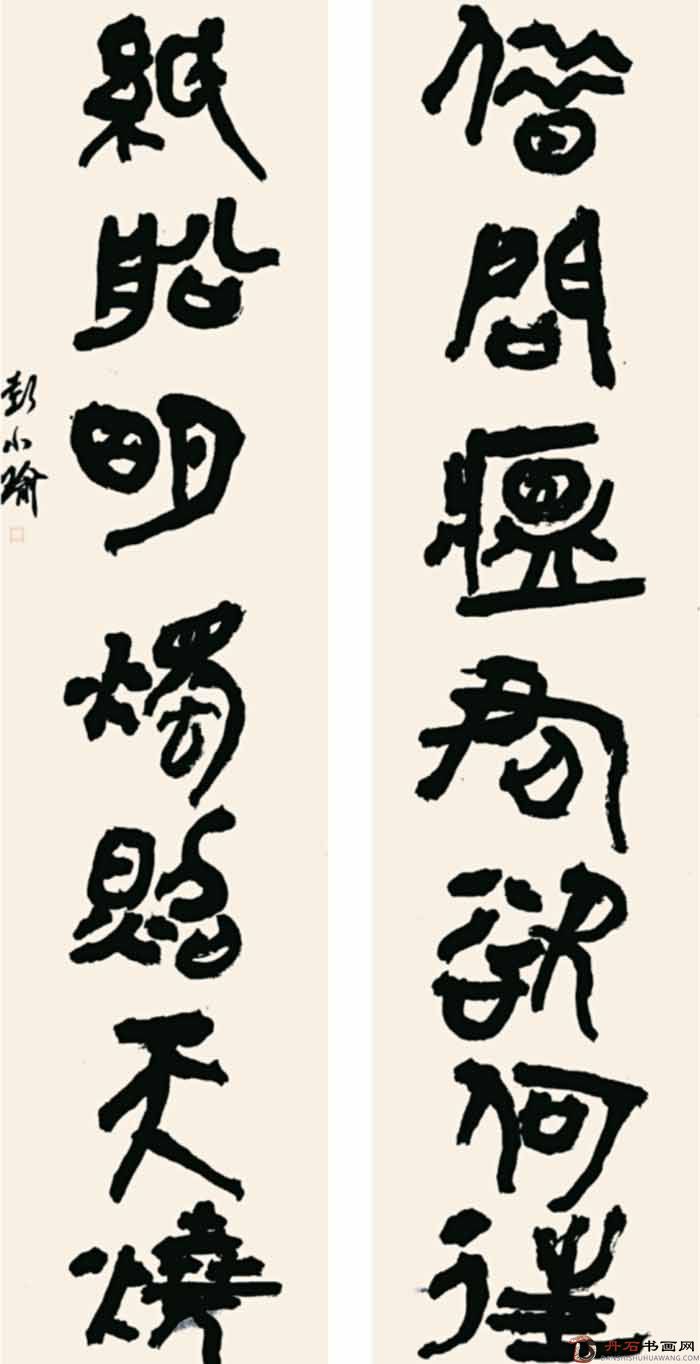 借問瘟君欲何往
紙船明燭照天燒
彭小瑜
丹石书画网
DANSHISHUHUAWANG.COM